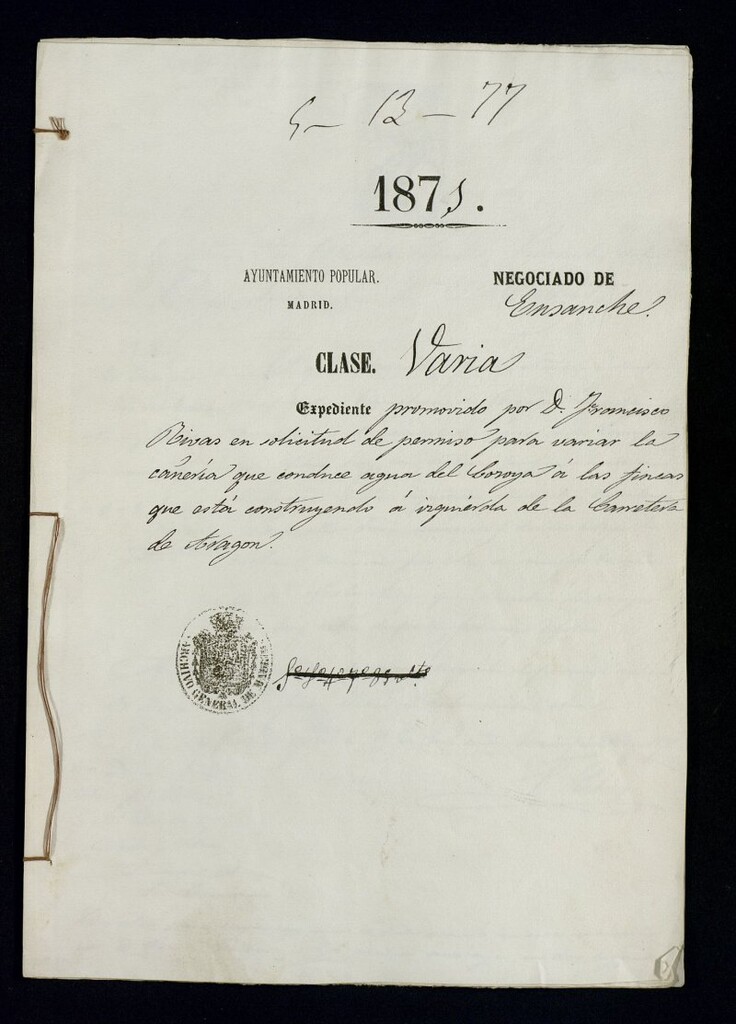 5 - 13 - 77
1871.
AYUNTAMIENTO POPULAR.
MADRID.
NEGOCIADO DE
Ensanche.
CLASE. Varia
Expediente promovido por D. Francisco
Rivas en solicitud de permiso para variar la
cañería que conduce agua del Lozoya á las fincas
que está construyendo á izquierda de la Carretera
de Aragon.
ARCHIVO GENERAL DE MADRID